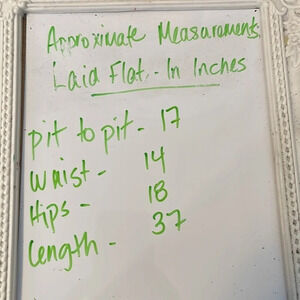 Approximate Measurements
Laid Flat - In Inches
pit to pit - 17
Waist - 14
Hips - 18
Length - 37